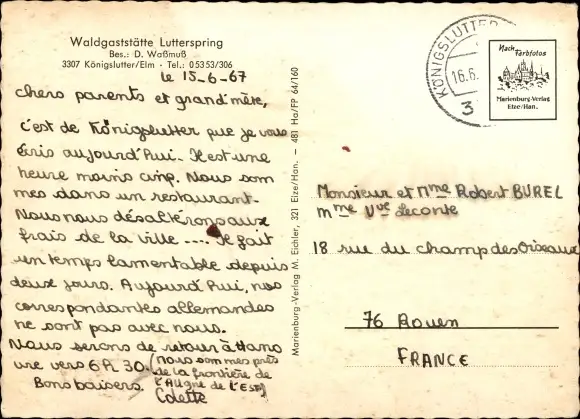 Waldgaststätte Lutterspring
Bes.: D. Waßmuß
3307 Königslutter/Elm · Tel.: 05353/306
le 15-6-67
chers parents et grand'mère,
c'est de Königslutter que je vous
écris aujourd'hui. Il est une
heure moins cinq. Nous som
mes dans un restaurant.
Nous nous désaltérons aux
frais de la ville .... Il fait
un temps lamentable depuis
deux jours. Aujourd'hui, nos
correspondantes allemandes
ne sont pas avec nous.
Nous serons de retour à Hano
vre vers 6h 30. (nous sommes près
de la frontière de
l'Allgne de l'Est)
Bons baisers. Colette
Marienburg-Verlag M. Eichler, 321 Elze/Han. — 481 Ha/FP 64/160
KÖNIGSLUTTER
16.6.
3
Nach Farbfotos
Marienburg-Verlag
Elze/Han.
Monsieur et Mme Robert BUREL
Mme Vve Leconte
18 rue du champ des Oiseaux
76 Rouen
FRANCE